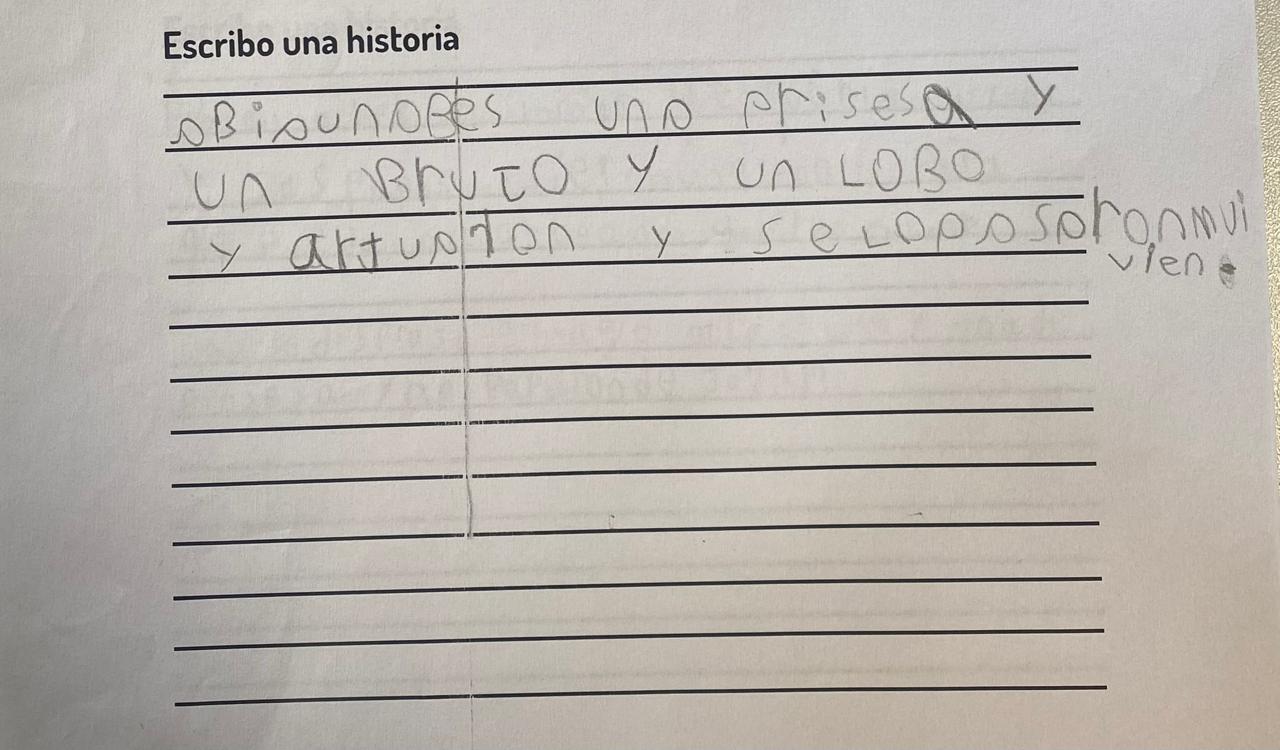 Escribo una historia
aBiaunaBes una prisesa y
un BruJo y un LOBO
y artuaton y seLapasaron mui
vien.